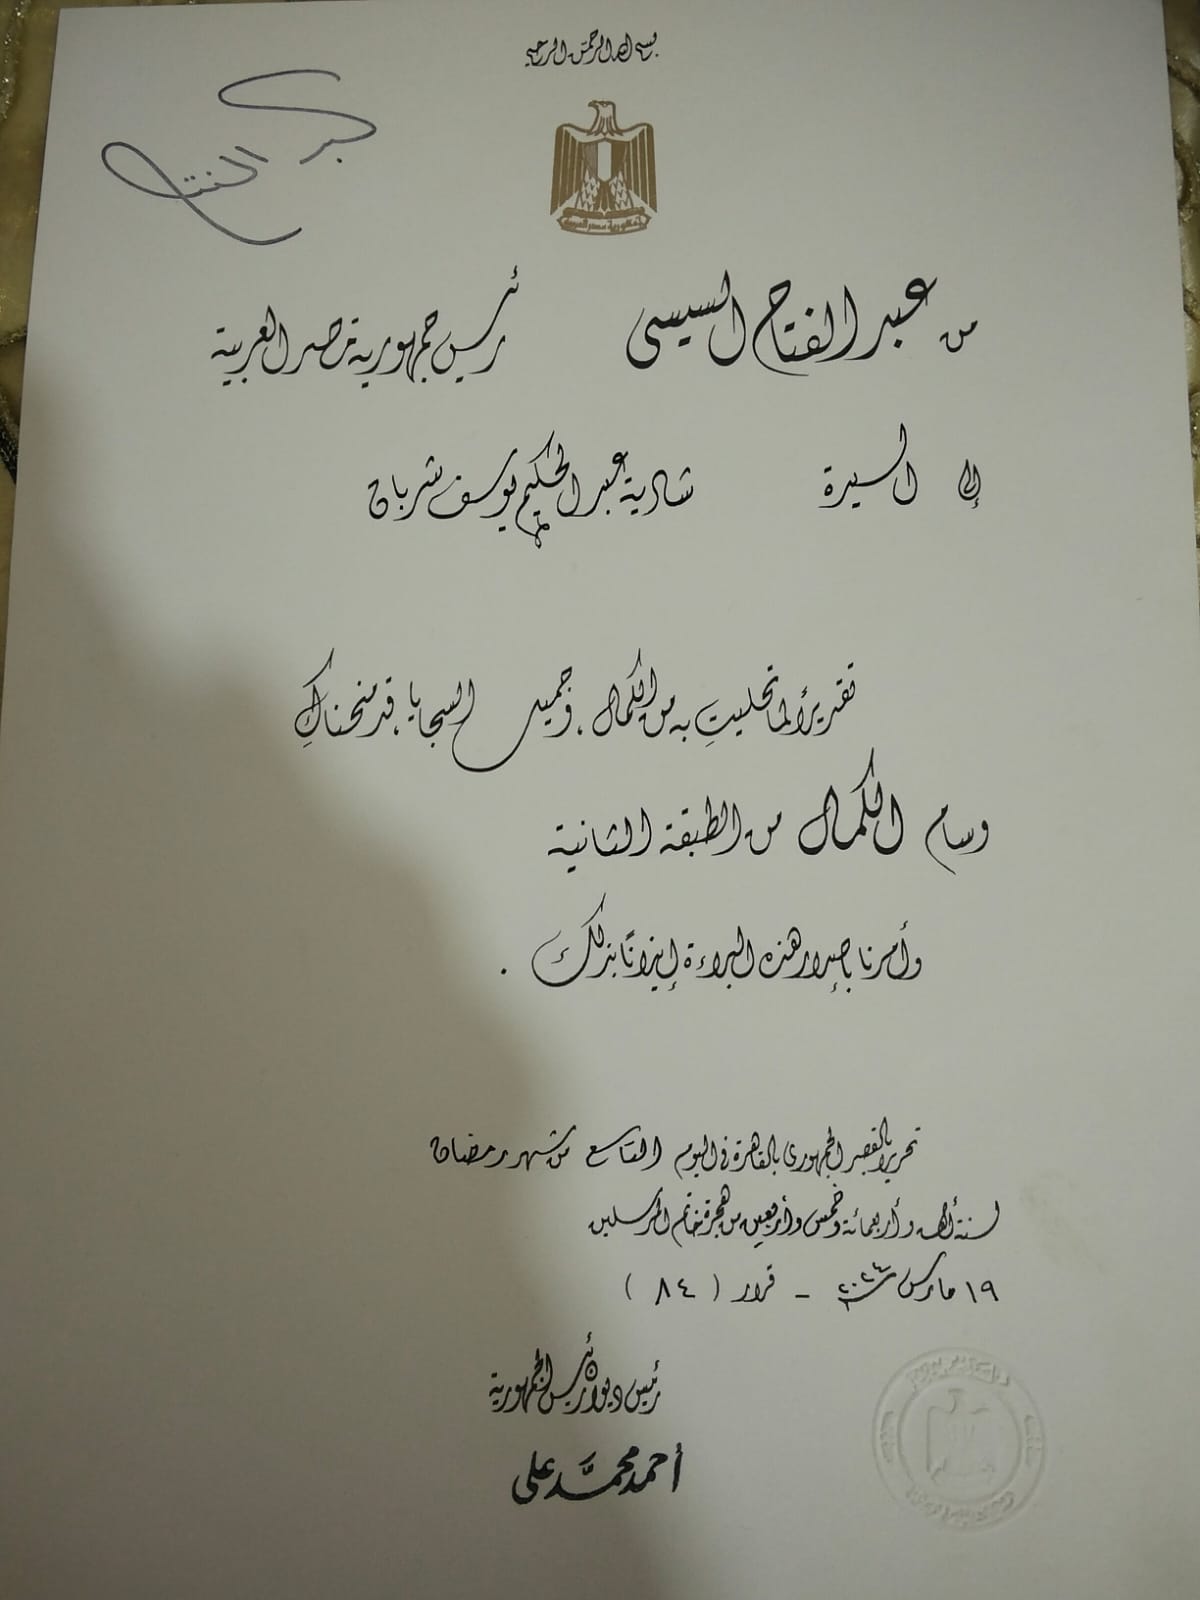 بسم الله الرحمن الرحيم
جمهورية مصر العربية
من عبد الفتاح السيسى رئيس جمهورية مصر العربية
إلى السيدة شادية عبد الحكيم يوسف شربان
تقديراً لما تحليتِ به من الكمال، وجميل السجايا، قد منحناكِ
وسام الكمال من الطبقة الثانية
وأمرنا بإصدار هذه البراءة إيذانًا بذلك .
تحريراً بالقصر الجمهورى بالقاهرة فى اليوم التاسع من شهر رمضان
لسنة ألف وأربعمائة وخمس وأربعين من هجرة خاتم المرسلين
١٩ مارس سنة ٢٠٢٤ - قرار ( ٨٤ )
رئيس ديوان رئيس الجمهورية
أحمد محمَّد على